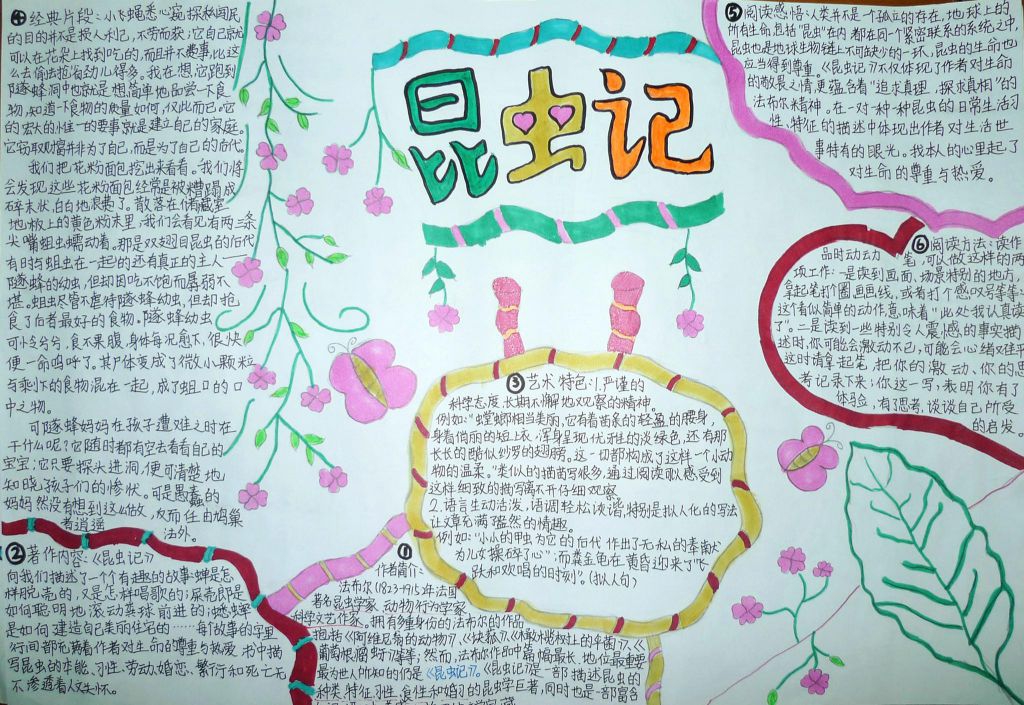 昆虫记
①
作者简介:
法布尔(1823-1915)年法国
著名昆虫学家、动物行为学家
科学文艺作家。拥有多重身份的法布尔的作品
种类、特征、习性、食性和婚习的昆虫学巨著,同时也是一部富含
②著作内容:《昆虫记》
向我们描述了一个个有趣的故事:蝉是怎
样脱壳的,又是怎样唱歌的;屎壳郎是
如何聪明地滚动粪球前进的;蟋蟀
是如何建造自己美丽住宅的……每个故事的字里
行间都充满着作者对生命的尊重与热爱.书中描
写昆虫的本能、习性、劳动、婚恋、繁衍和死亡无
不渗透着人文关怀。
③艺术特色:1.严谨的
科学态度,长期不懈地观察的精神。
例如:“螳螂相当美丽,它有着苗条的轻盈的腰身,
身着俏丽的短上衣,浑身呈现优雅的淡绿色,还有那
长长的酷似纱罗的翅膀。这一切都构成了这样一个小动
物的温柔。”类似的描写很多,通过阅读感受到
这样细致的描写离不开仔细观察
2.语言生动活泼,语调轻松诙谐,特别是拟人化的写法
让文章充满盎然的情趣。
例如:“小小的甲虫为它的后代作出了无私的奉献
为儿女操碎了心”;而粪金龟在黄昏迎来了“飞
跃和欢唱的时刻”。(拟人句)
④经典片段:小飞蝇悉心窥探私闻民
的目的并不是损人利己,不劳而获;它自己就
可以在花朵上找到吃的,而且并不费事,比这
么去偷去抢省劲儿得多。我在想,它跑到
隧蜂洞中也就是想简单地品尝一下食
物,知道一下食物的质量如何,仅此而已。它
的宏大的惟一的要事就是建立自己的家庭。
它窃取财富并非为了自己,而是为了自己的后代。
我们把花粉面包挖出来看看。我们将
会发现这些花粉面包经常是被糟蹋成
碎末状,白白地浪费了。散落在储藏室
地板上的黄色粉末里,我们会看见有两三条
尖嘴蛆虫蠕动着。那是双翅目昆虫的后代
有时与蛆虫在一起的还有真正的主人——
隧蜂的幼虫,但却因吃不饱而孱弱不
堪。蛆虫尽管不虐待隧蜂幼虫,但却抢
食了后者最好的食物。隧蜂幼虫
可怜兮兮,食不果腹,身体每况愈下,很快
便一命呜呼了。其尸体变成了微小颗粒
与剩下的食物混在一起,成了蛆虫的口
中之物。
可隧蜂妈妈在孩子遭难之时在
干什么呢?它随时都有空去看看自己的
宝宝;它只要探头进洞,便可清楚地
知晓孩子们的惨状。可是愚蠢的
妈妈然没有想到这么做,反而任由鸠巢
者逍遥法外。
⑤阅读感悟:人类并不是一个孤立的存在,地球上的
所有生命,包括“昆虫”在内都在同一个紧密联系的系统之中,
昆虫也是地球生物链上不可缺少的一环,昆虫的生命也
应当得到尊重。《昆虫记》不仅体现了作者对生命
的敬畏之情,更蕴含着“追求真理,探求真相”的
法布尔精神。在一对一种一种昆虫的日常生活习
性、特征的描述中体现出作者对生活世
事特有的眼光。我本人的心里起了
对生命的尊重与热爱。
⑥阅读方法:读作
品时动动笔,可以做这样的两
项工作:一是读到画面、场景特别的地方,
拿起笔打个圈画画线,或者打个感叹号等等:
这个看似简单的动作,意味着“此处我认真读
了”。二是读到一些特别令人震憾的事实描
述时,你可能会激动不已,可能会心绪难平
这时请拿起笔,把你的激动、你的思
考记录下来;你这一写,表明你有了
体验,有了思考,谈谈自己所受
的启发。